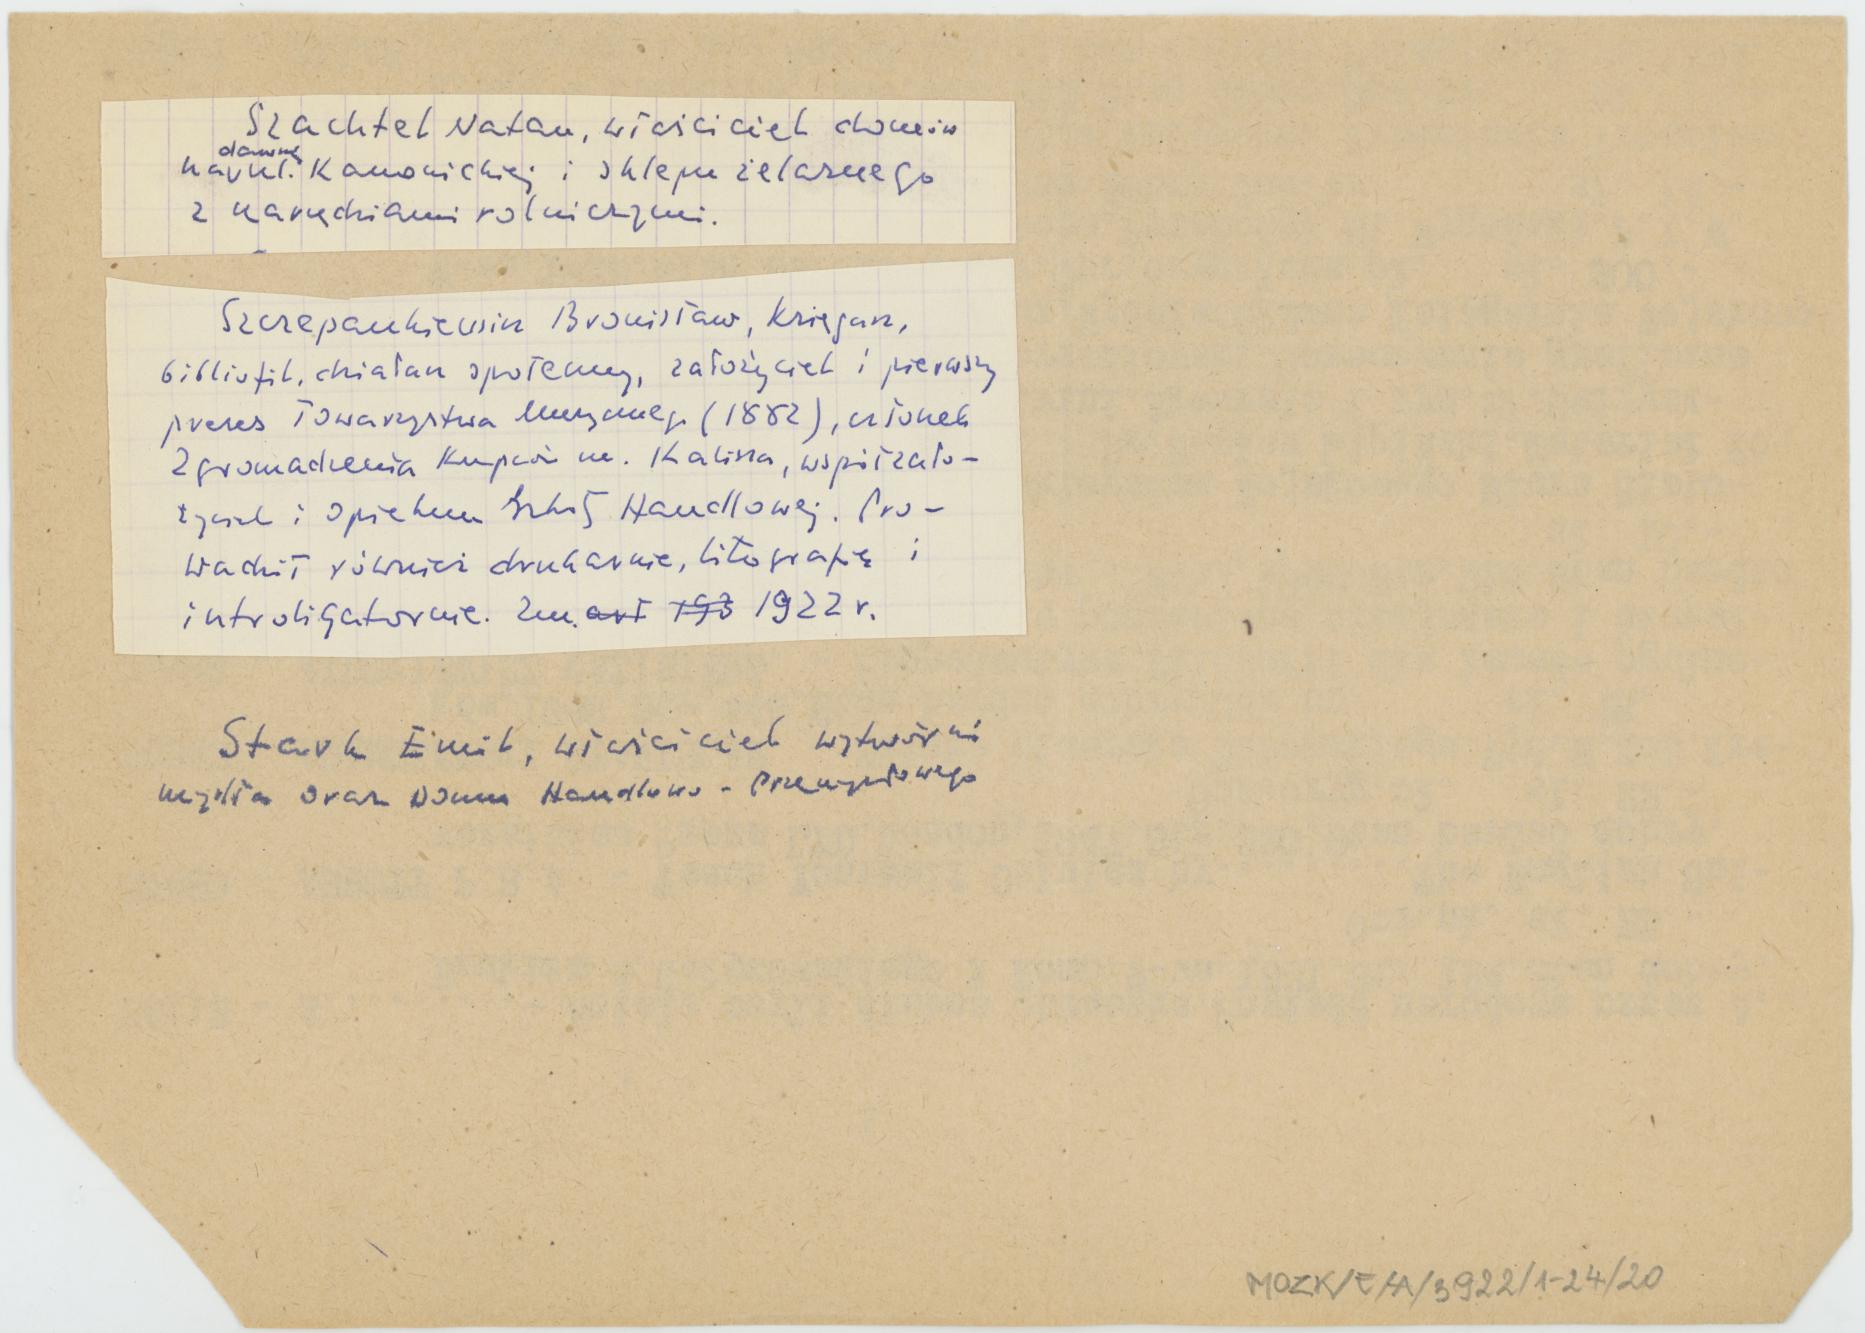 Szachtel Natan, właściciel domów
na dawnej ul. Kanonickiej i sklepu żelaznego
z narzędziami rolniczymi.
Szczepankiewicz Bronisław, księgarz,
bibliofil, działacz społeczny, założyciel i pierwszy
prezes Towarzystwa Muzycznego (1882), członek
Zgromadzenia Kupców m. Kalisza, współzało-
życiel i opiekun Szkoły Handlowej. Pro-
wadził również drukarnię, litografię i
introligatornię. Zm. 1922 r.
Stark Emil, właściciel wytwórni
mydła oraz Domu Handlowo-Przemysłowego
MOZK/E/A/3922/1-24/20